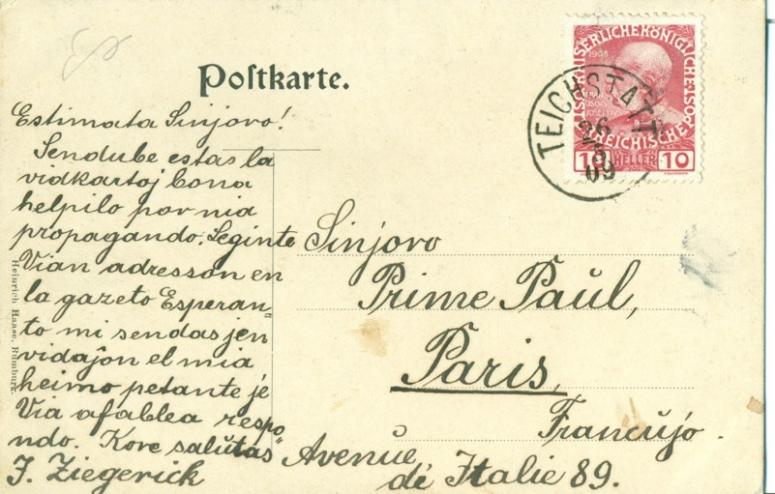 Postkarte.
KAISERLICHE KÖNIGLICHE
ÖSTERREICHISCHE POST
1908
10 HELLER 10
TEICHSTATT
09
Estimata Sinjoro!
Sendube estas la
vidkartoj bona
helpilo por nia
propagando. Leginte
Vian adresson en
la gazeto Esperan„
to mi sendas jen
vidaĵon el mia
heimo petante je
Via afablea respo„
ndo. Kore salutas
J. Ziegerick
Sinjoro
Prime Paŭl,
Paris,
Francŭjo.
Avenue
de Italie 89.
Heinrich Haase, Rumburg.